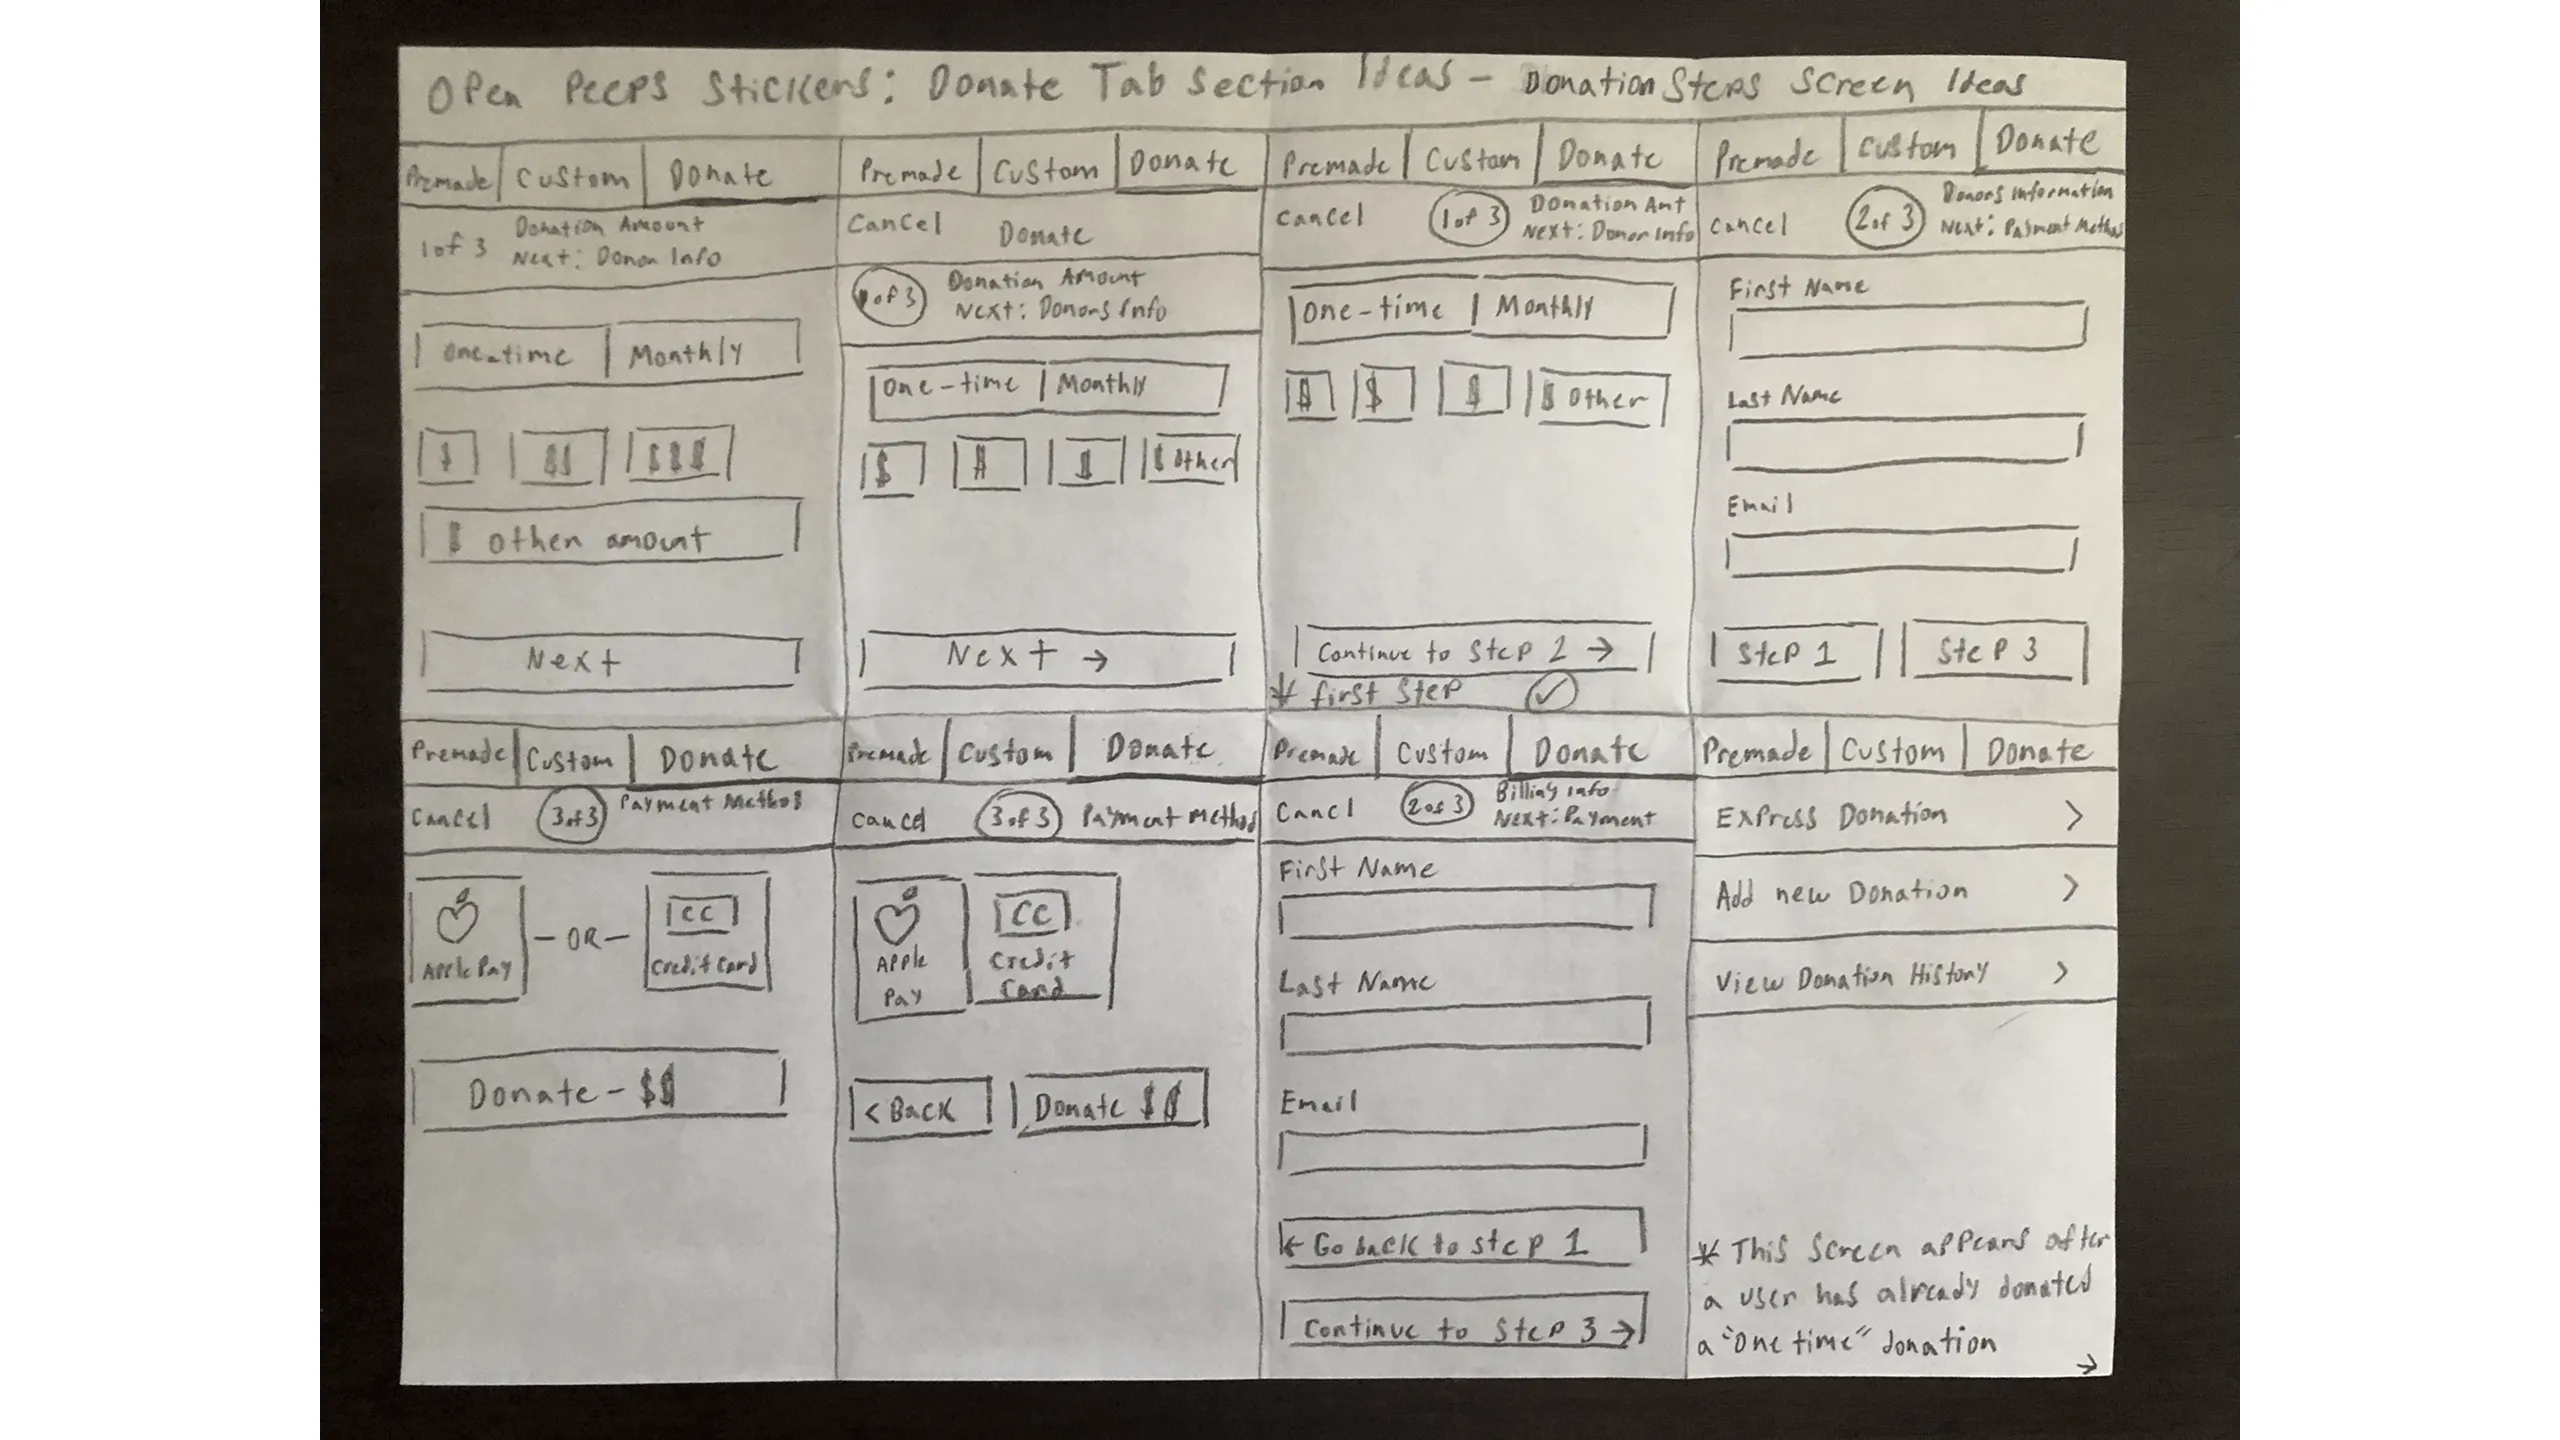 Open Peeps Stickers: Donate Tab Section Ideas - Donation Steps Screen Ideas
Premade Custom Donate
1 of 3 Donation Amount
Next: Donor Info
One-time Monthly
$ $$ $$$
$ Other amount
Next
Premade Custom Donate
Cancel Donate
1 of 3 Donation Amount
Next: Donors Info
One-time Monthly
$ $ $ $ Other
Next →
Premade Custom Donate
Cancel 1 of 3 Donation Amt
Next: Donor Info
One-time Monthly
$ $ $ $ Other
Continue to Step 2 →
* first Step ✓
Premade Custom Donate
Cancel 2 of 3 Donors Information
Next: Payment Method
First Name
Last Name
Email
Step 1 Step 3
Premade Custom Donate
Cancel 3 of 3 Payment Method
Apple Pay - OR - CC Credit Card
Donate - $$
Premade Custom Donate
Cancel 3 of 3 Payment Method
Apple Pay CC Credit Card
< Back Donate $$
Premade Custom Donate
Cancl 2 of 3 Billing info
Next: Payment
First Name
Last Name
Email
← Go back to step 1
Continue to Step 3 →
Premade Custom Donate
Express Donation >
Add new Donation >
View Donation History >
* This screen appears after
a user has already donated
a "One time" donation
→